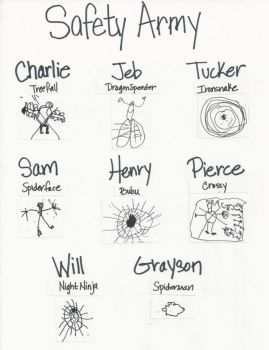 Safety Army
Charlie Jeb Tucker
Treefall DragonSpeeder Ironsnake
Sam Henry Pierce
Spiderface Bubu Crossy
Will Grayson
Night Ninja Spiderman